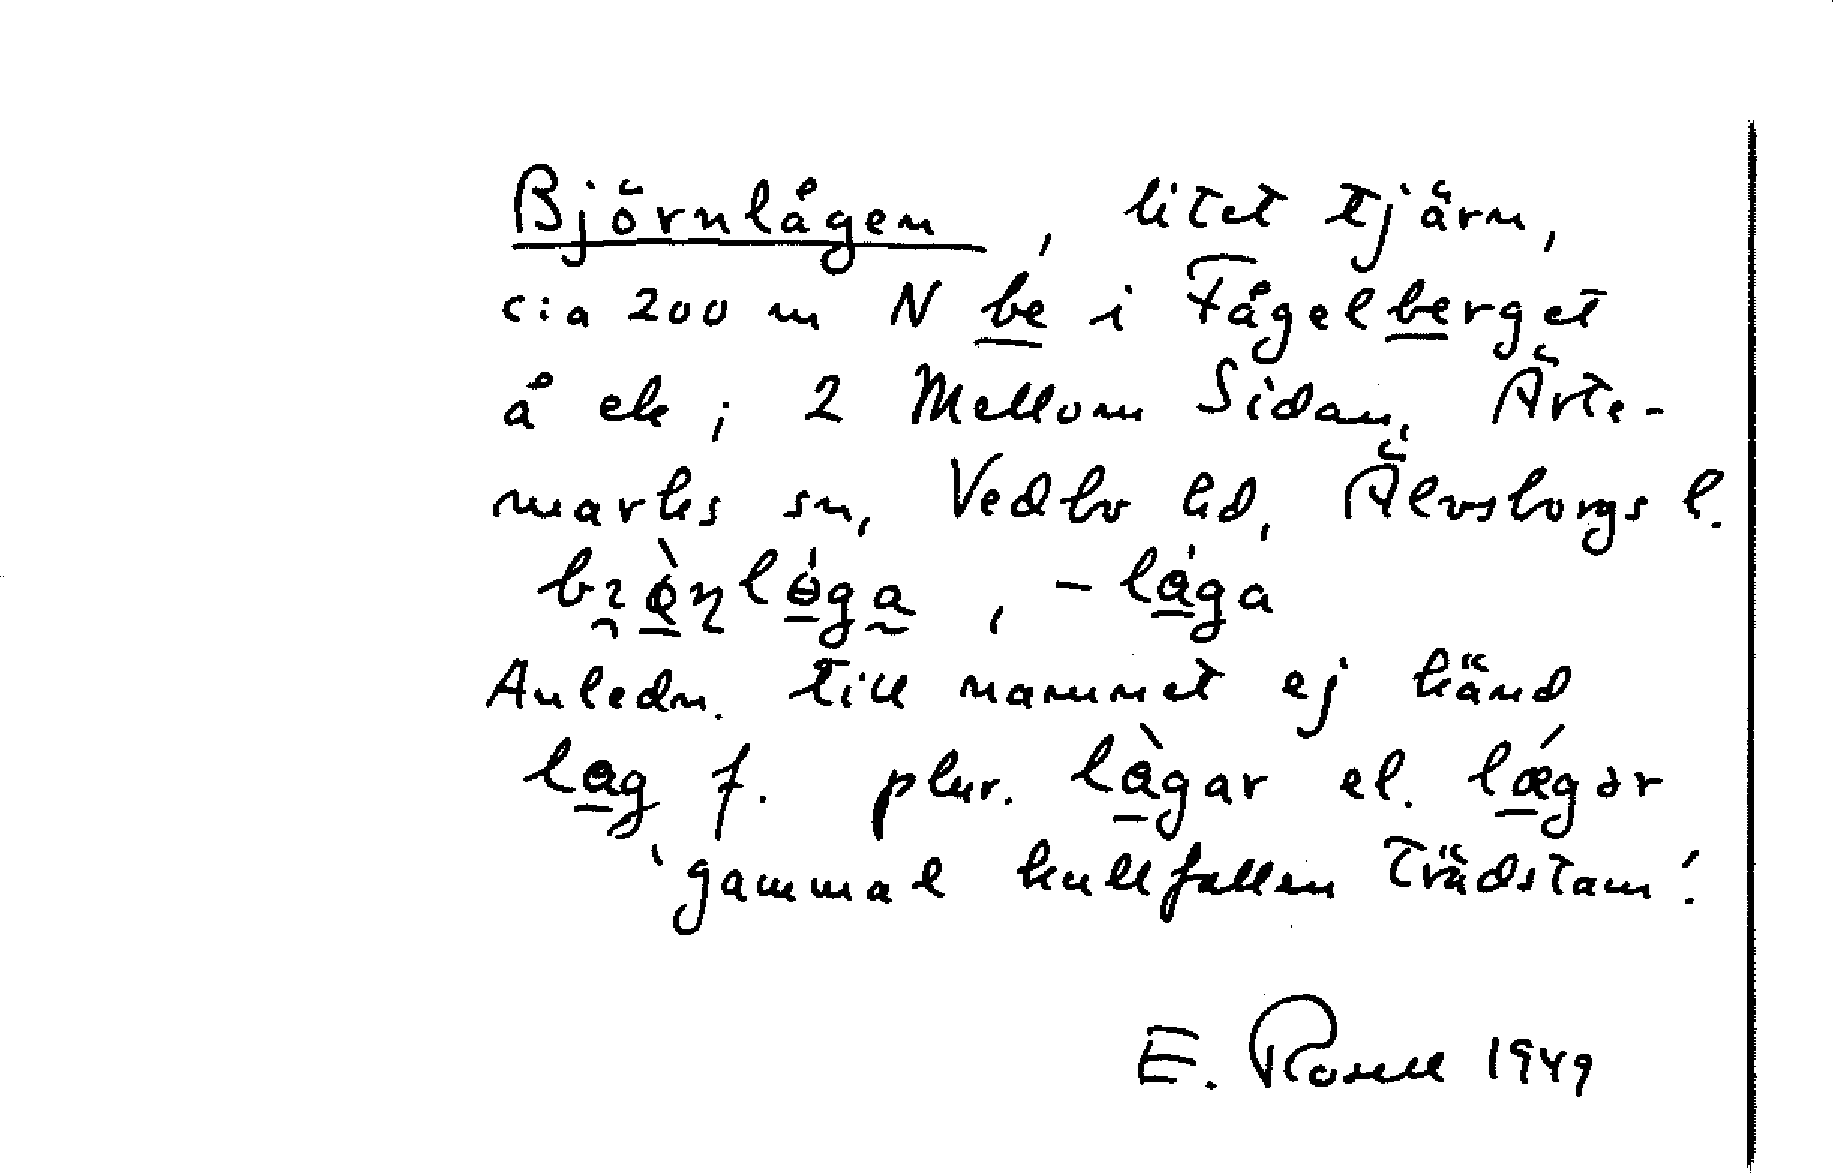 Björnlågen, litet tjärn,
c:a 200 m N be i Fågelberget
å ek; 2 Mellom Sidan, Ärte-
marks sn, Vedbo hd, Älvsborgs l.
-låga
Anledn. till namnet ej känd
lag f. plur. làgar el. lǽgər
'gammal kullfallen trädstam'.
E. Rosell 1949